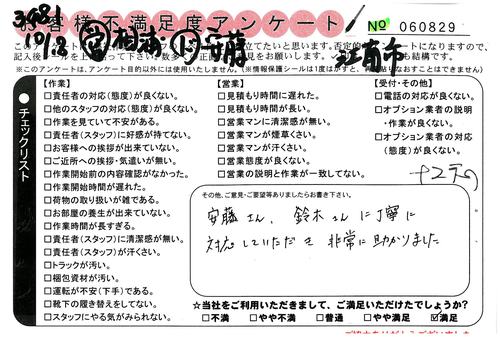 お客様不満足度アンケート
No 060829
3981
10/12
安藤
江南市
【作業】
□責任者の対応(態度)が良くない。
□他のスタッフの対応(態度)が良くない。
□作業を見ていて不安がある。
□責任者(スタッフ)に好感が持てない。
□お客様への挨拶が出来ていない。
□ご近所への挨拶・気遣いが無い。
□作業開始前の内容確認がなかった。
□作業開始時間が遅れた。
□荷物の取り扱いが雑である。
□お部屋の養生が出来ていない。
□作業時間が長すぎる。
□責任者(スタッフ)に清潔感が無い。
□責任者(スタッフ)が汗くさい。
□トラックが汚い。
□梱包資材が汚い。
□運転が不安(下手)である。
□靴下の履き替えをしてない。
□スタッフにやる気がみられない。
【営業】
□見積もり時間に遅れた。
□見積もり時間が長い。
□営業マンに清潔感が無い。
□営業マンが煙草くさい。
□営業マンが汗くさい。
□営業態度が良くない。
□営業の説明と作業が一致してない。
【受付・その他】
□電話の対応が良くない。
□オプション業者の説明
・作業が良くない。
□オプション業者の対応
(態度)が良くない。
●チェックリスト
その他、ご意見・ご要望等ありましたらお書き下さい。
安藤さん、鈴木さんに丁寧に
対応していただき非常に助かりました
☆当社をご利用いただきまして、ご満足いただけたでしょうか?
□不満 □やや不満 □普通 □やや満足 ☑満足